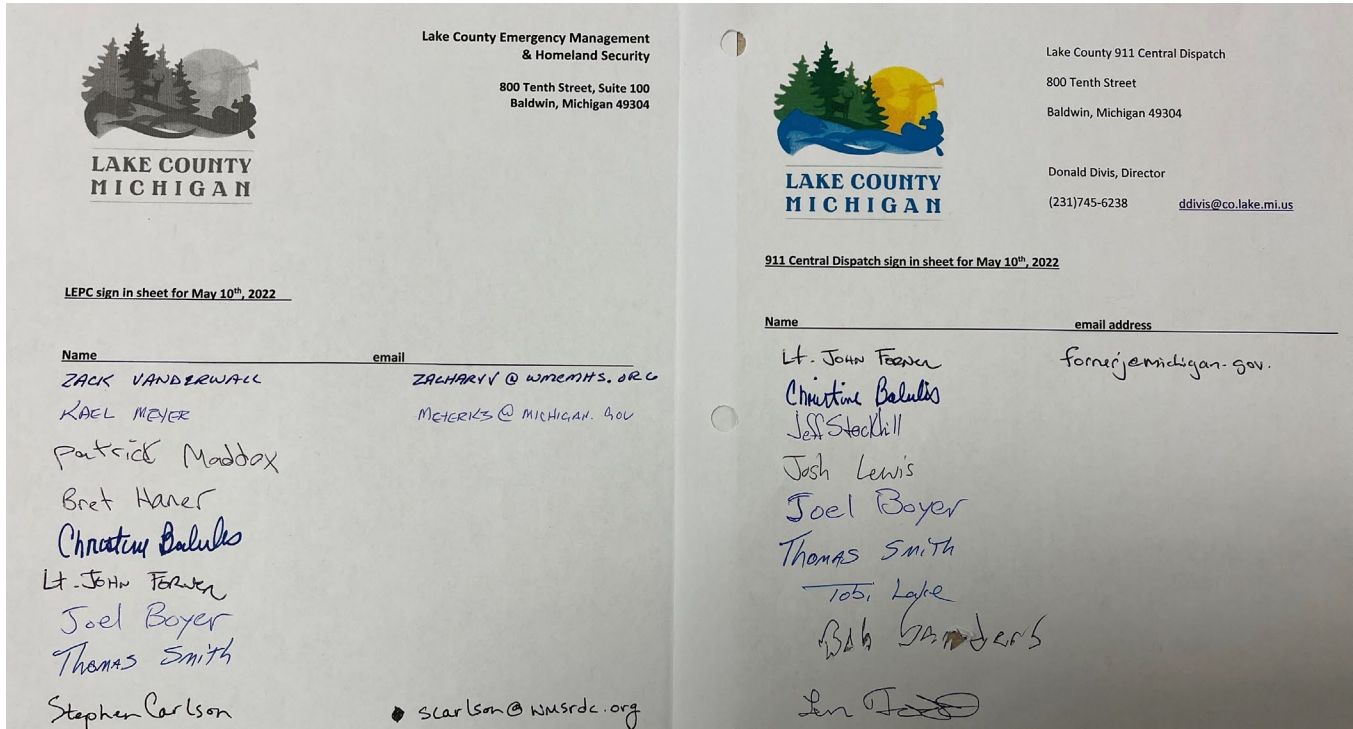 Lake County Emergency Management
& Homeland Security
800 Tenth Street, Suite 100
Baldwin, Michigan 49304
LAKE COUNTY
MICHIGAN
LEPC sign in sheet for May 10th, 2022
Name email
ZACK VANDERWALL ZACHARYV @ WMEMHS.ORG
KAEL MEYER MEYERK3@ MICHIGAN.GOV
Patrick Maddox
Bret Haner
Christine Balulis
Lt. JOHN FORNER
Joel Boyer
THOMAS SMITH
Stephen Carlson scarlson@wmsrdc.org
Lake County 911 Central Dispatch
800 Tenth Street
Baldwin, Michigan 49304
LAKE COUNTY
MICHIGAN
Donald Divis, Director
(231)745-6238 ddivis@co.lake.mi.us
911 Central Dispatch sign in sheet for May 10th, 2022
Name email address
Lt. JOHN FORNER fornerj@michigan.gov.
Christine Balulis
Jeff Stockhill
Josh Lewis
Joel Boyer
THOMAS SMITH
Tobi Lake
Bob Sanders